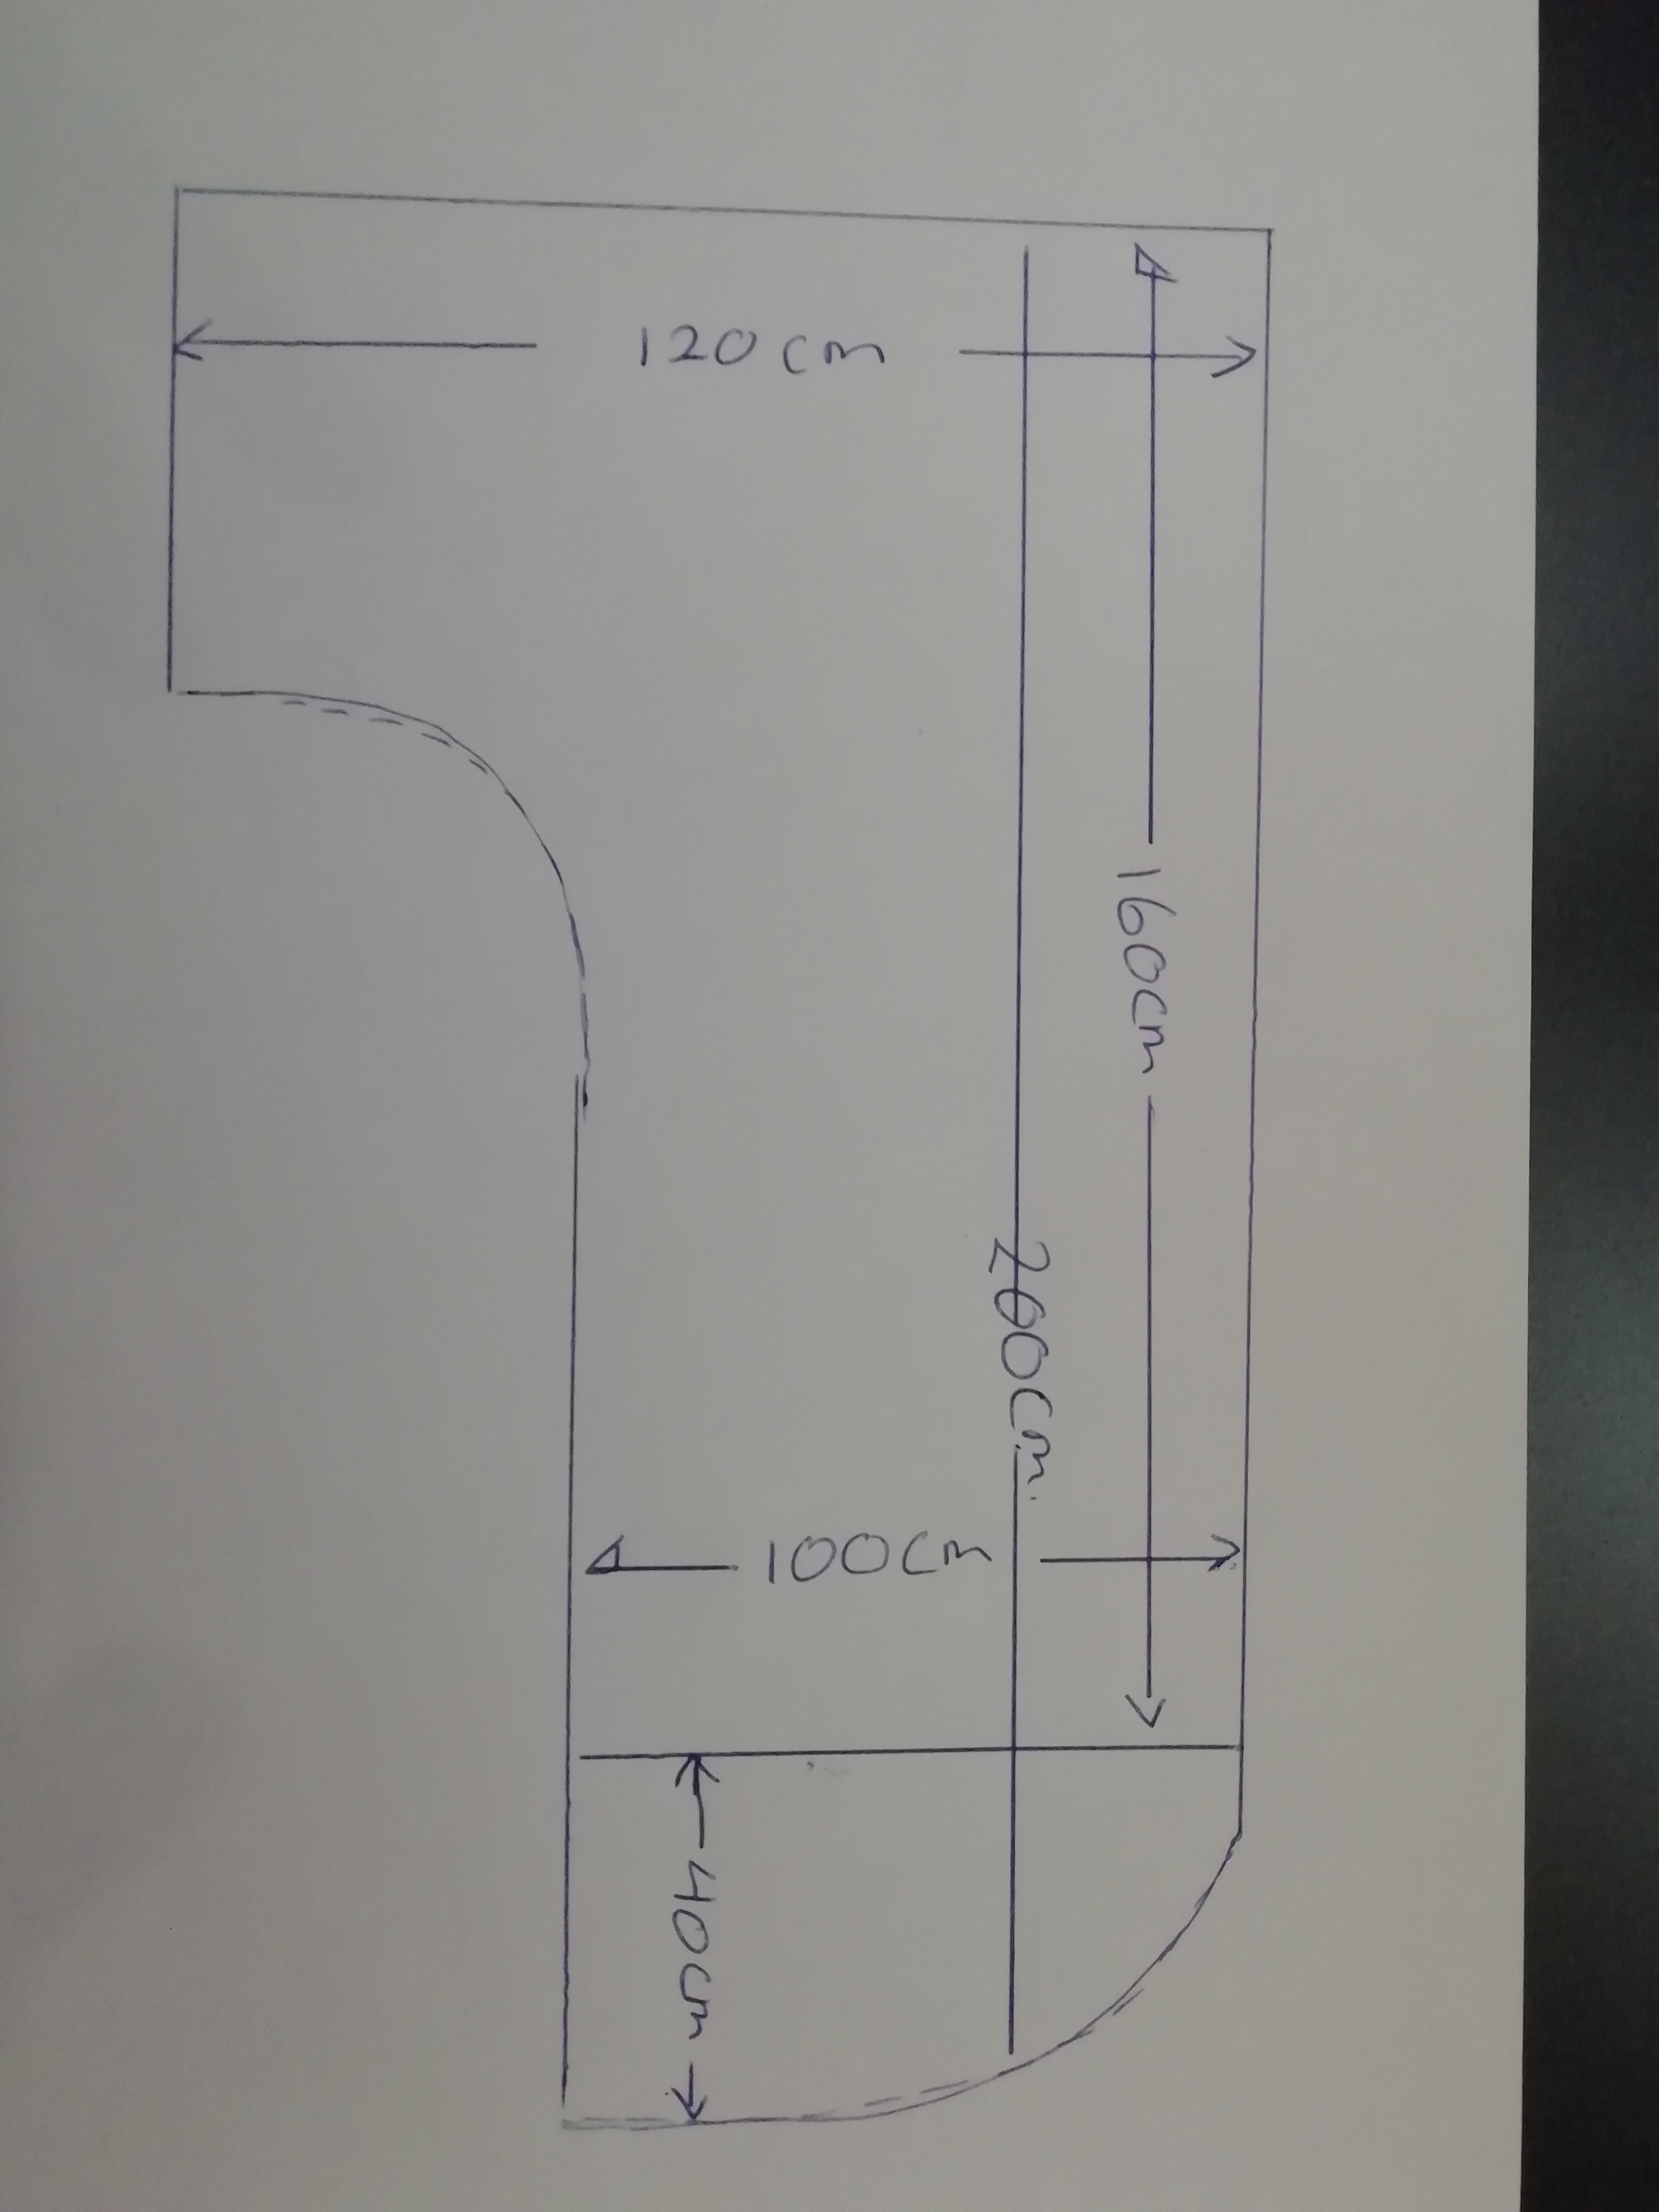 120cm
160cm
200cm.
100cm
40cm